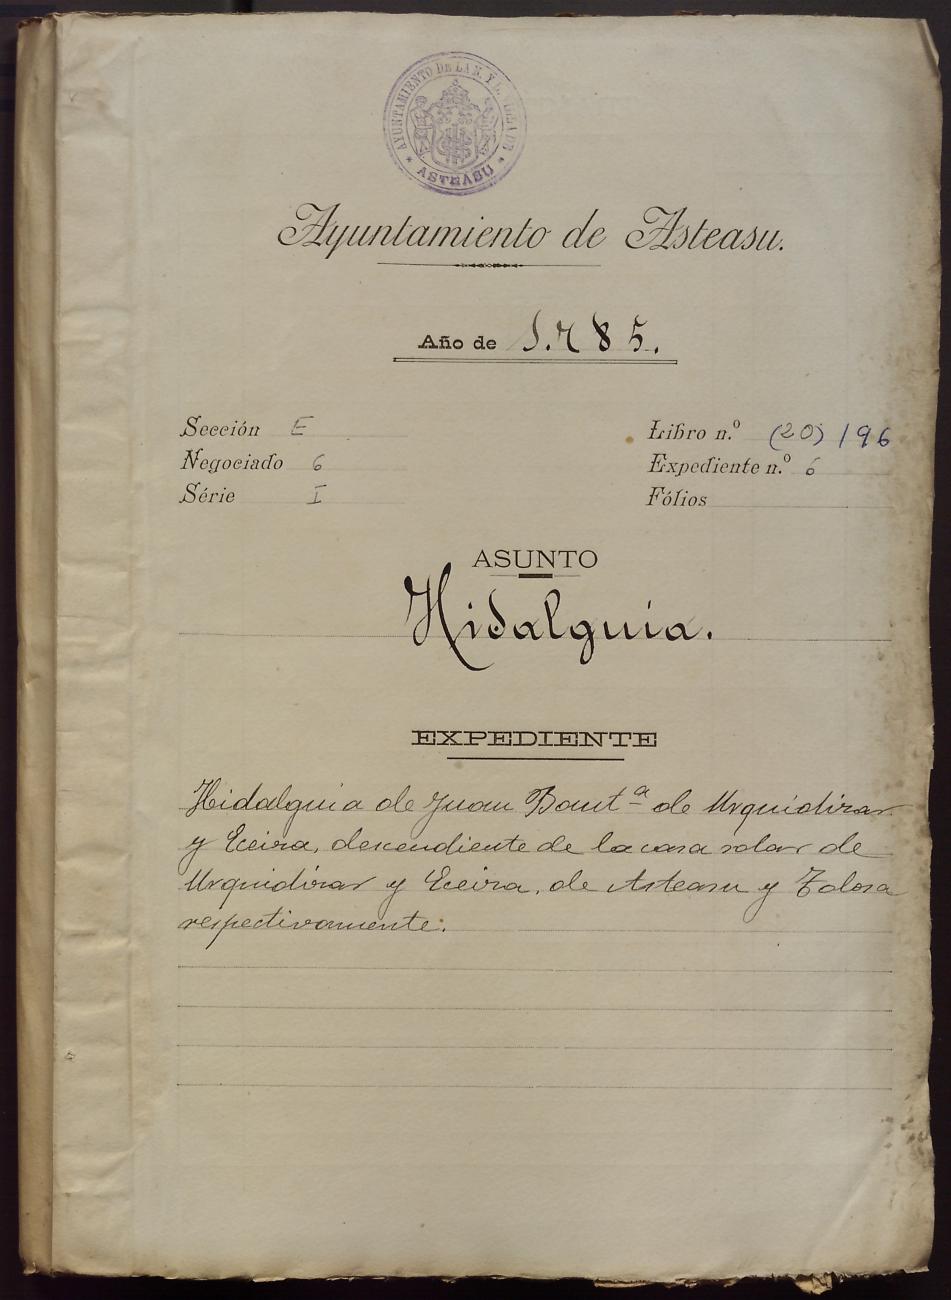 AYUNTAMIENTO DE LA N. Y L. VILLA DE
* ASTEASU *
Ayuntamiento de Asteasu.
Año de 1.785.
Sección E
Libro n.º (20) 196
Negociado 6
Expediente n.º 6
Série I
Fólios
ASUNTO
Hidalguia.
EXPEDIENTE
Hidalguia de Juan Baut.ª de Urquidizar
y Eceiza, descendiente de la casa solar de
Urquidizar y Eceiza, de Asteasu y Tolosa
respectivamente.